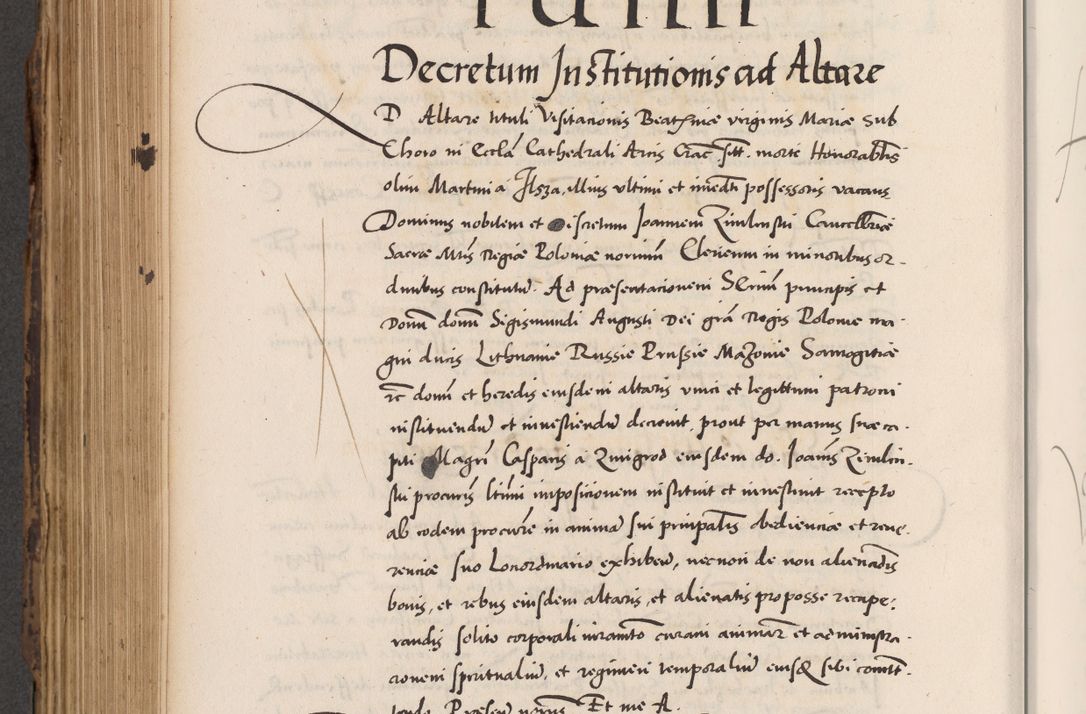 Decretum Institutionis ad Altare
D Altare tituli Visitationis Beatissimæ virginis Mariæ sub
Choro in Eccla Cathedrali Arcis Crac sitt. morte Honorabilis
olim Martini a Ilsza, illius ultimi et immedti possessoris vacans
Dominus nobilem et Discretum Joannem Zimlinski Cancellariæ
Sacræ Mtis Regiæ Poloniæ notarium Clericum in minoribus or-
dinibus constitutum. Ad præsentationem Serenmi principis et
Domi domi Sigismundi Augusti Dei gra Regis Poloniæ ma-
gni ducis Lithuanie Russie Prussie Mazovie Samogitiæ
etc domi et heredis eiusdem altaris unici et legittimi patroni
instituendum et investiendum decrevit, prout per manus suæ ca-
piti Magri Casparis a Zmigrod eiusdem do. Joannis Zimlin-
ski procuris ltimi impositionem instituit et investivit recepto
ab eodem procure in animam sui principalis obedienciæ et reve-
renciæ suo Locordinario exhibendum, necnon de non alienandis
bonis, et rebus eiusdem altaris, et alienatis pro posse recupe-
randis solito corporali iuramento curam animarum et administra-
cionem spiritualium, et regimen temporalium eiusdem sibi comitt-
tendo Presentibus Et me A.